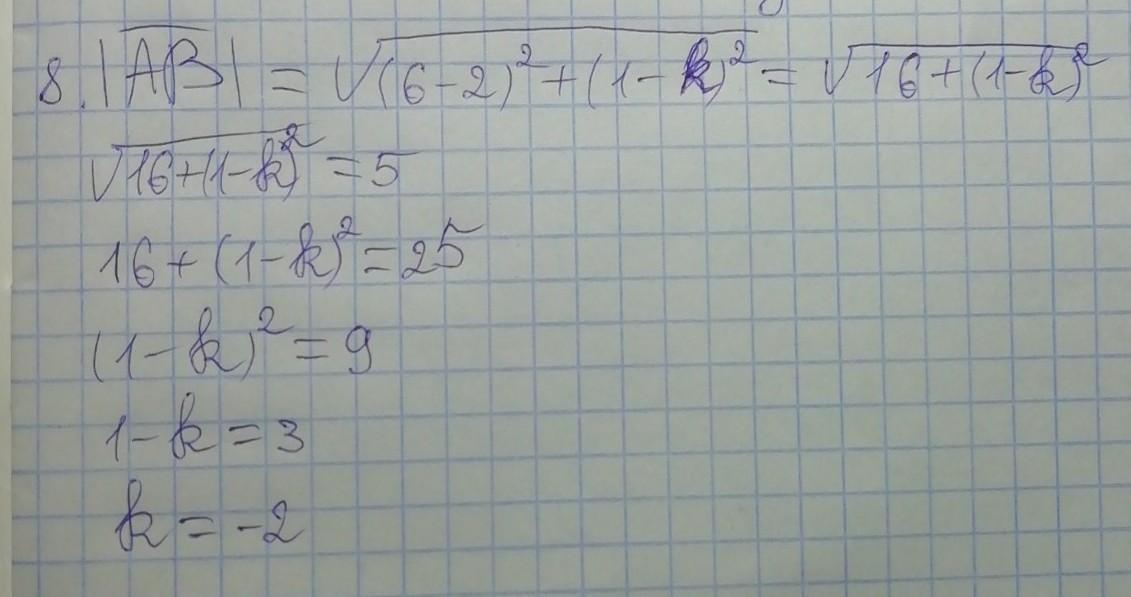 8. |AB| = √(6-2)²+(1-k)² = √16+(1-k)²
√16+(1-k)² = 5
16+(1-k)² = 25
(1-k)² = 9
1-k = 3
k = -2